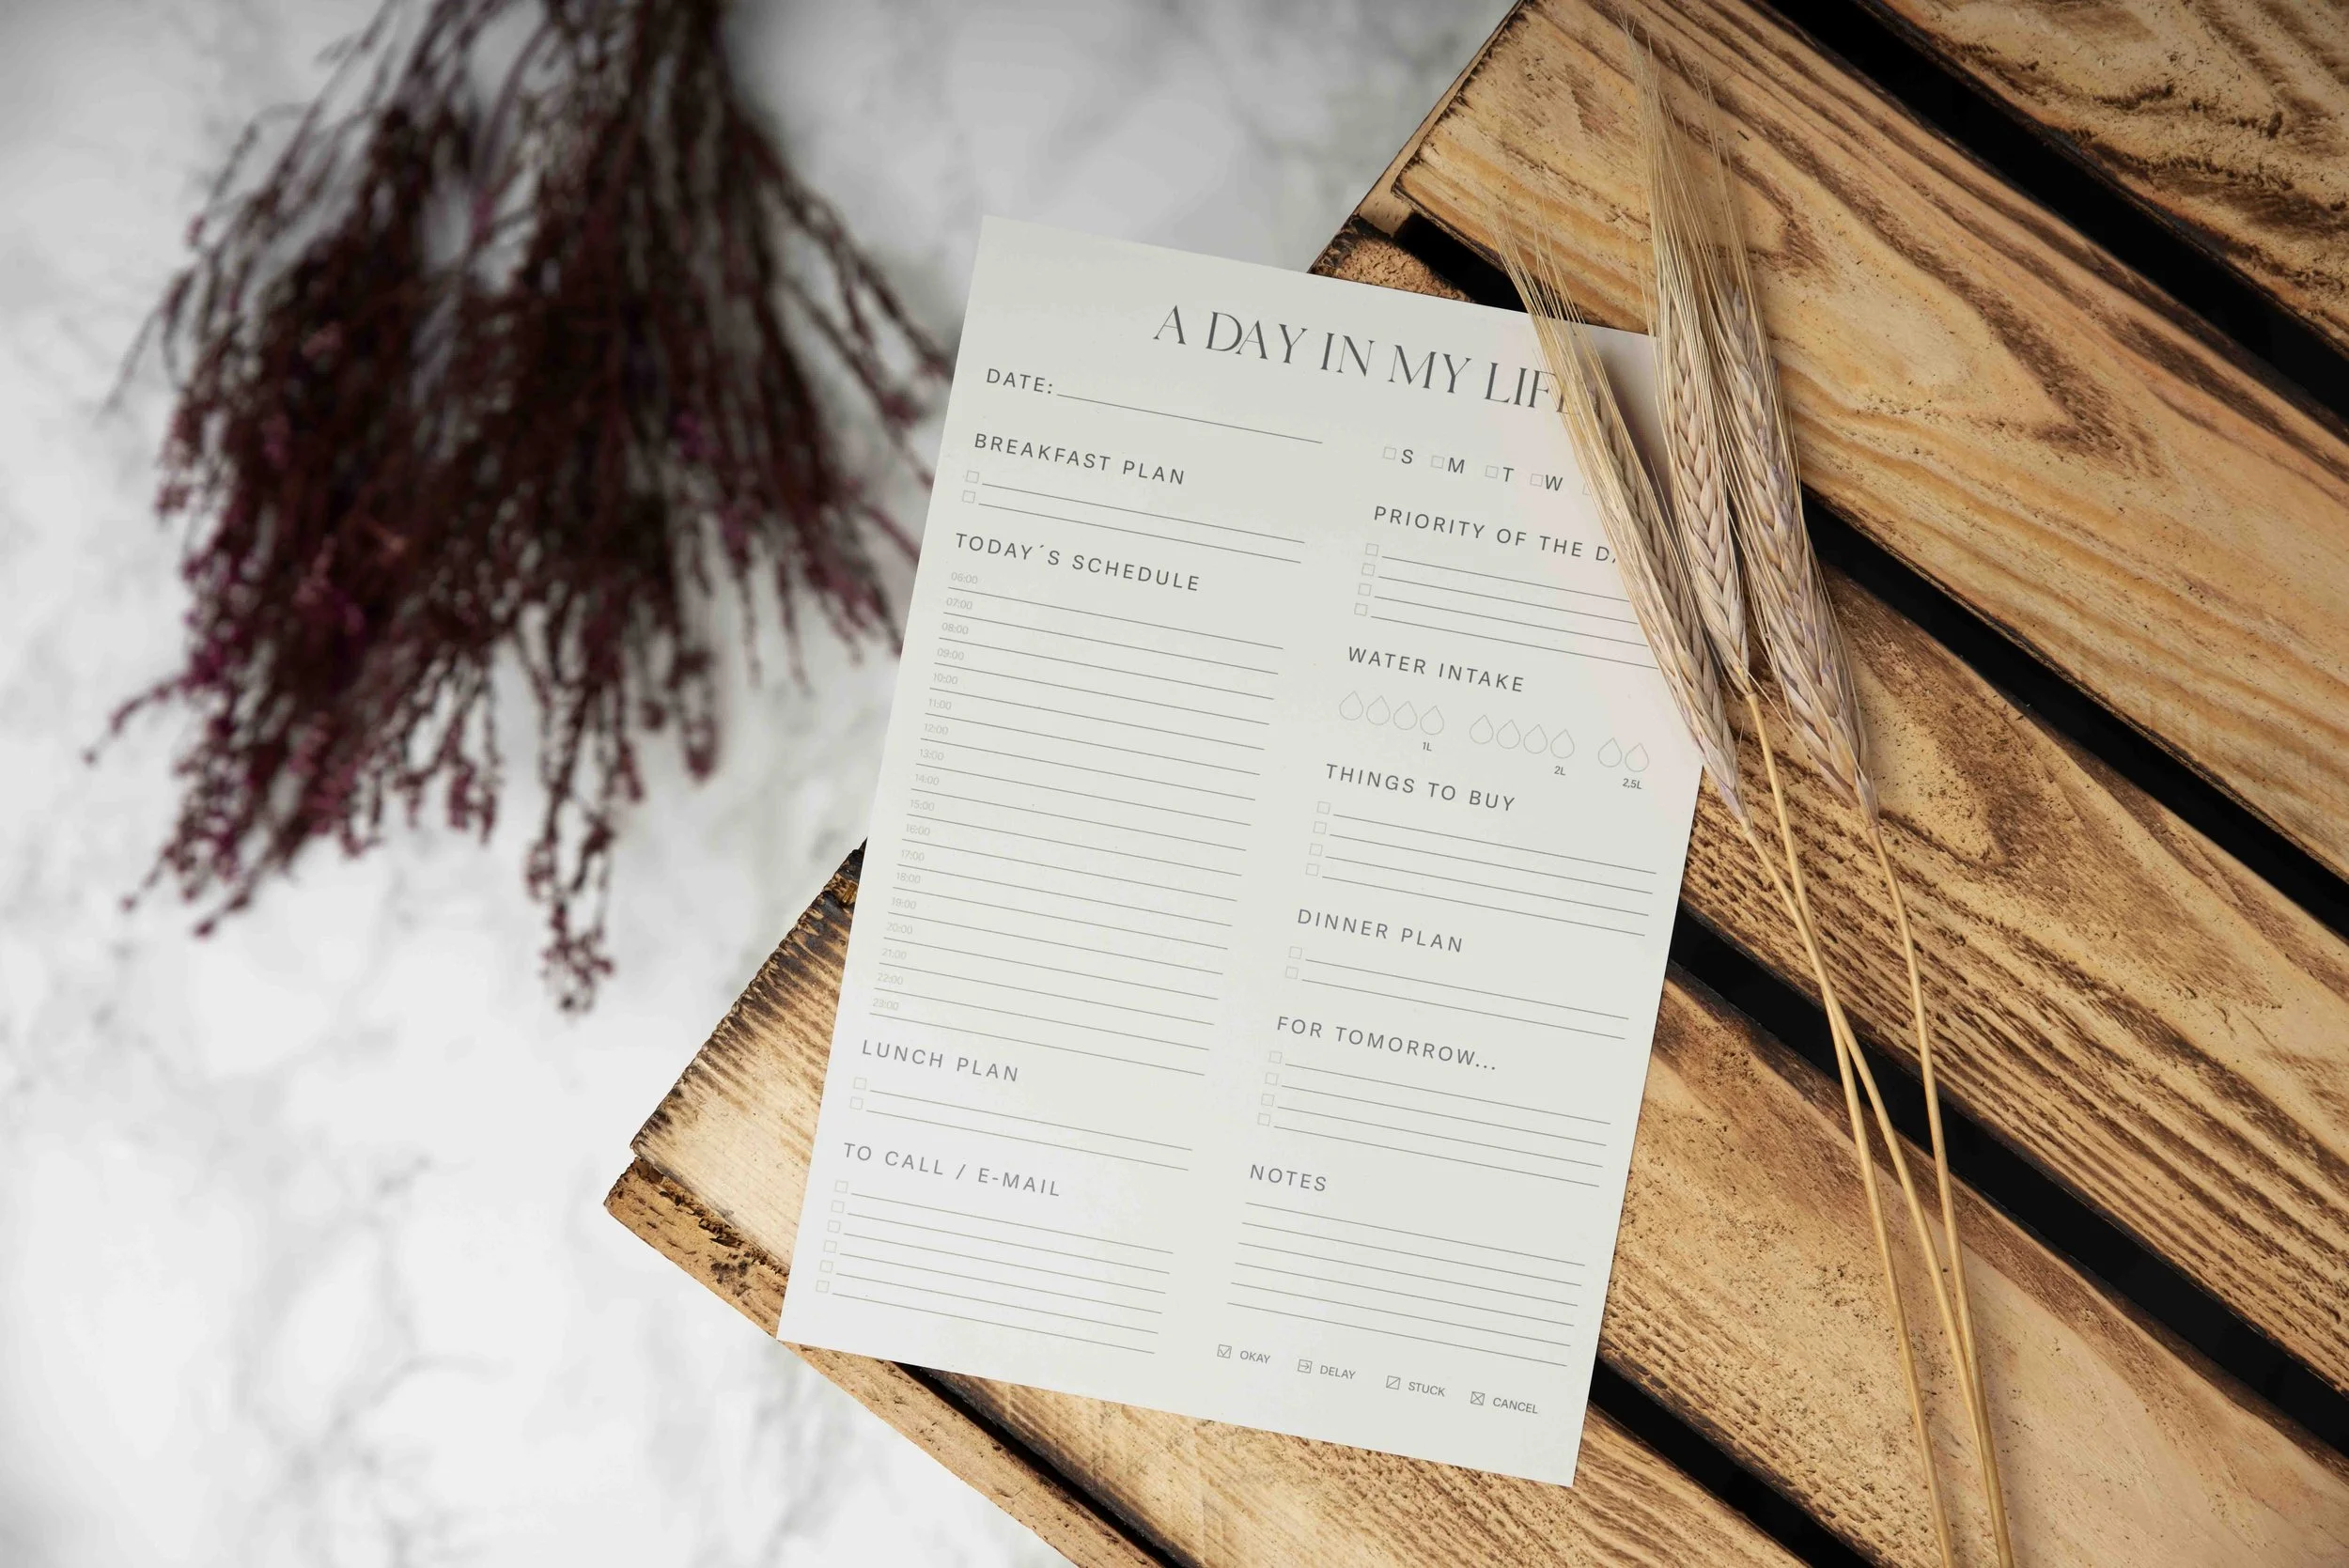 A DAY IN MY LIFE
DATE:
S M T W
BREAKFAST PLAN
TODAY´S SCHEDULE
06:00
07:00
08:00
09:00
10:00
11:00
12:00
13:00
14:00
15:00
16:00
17:00
18:00
19:00
20:00
21:00
22:00
23:00
LUNCH PLAN
TO CALL / E-MAIL
PRIORITY OF THE
WATER INTAKE
1L
2L
2,5L
THINGS TO BUY
DINNER PLAN
FOR TOMORROW...
NOTES
OKAY DELAY STUCK CANCEL